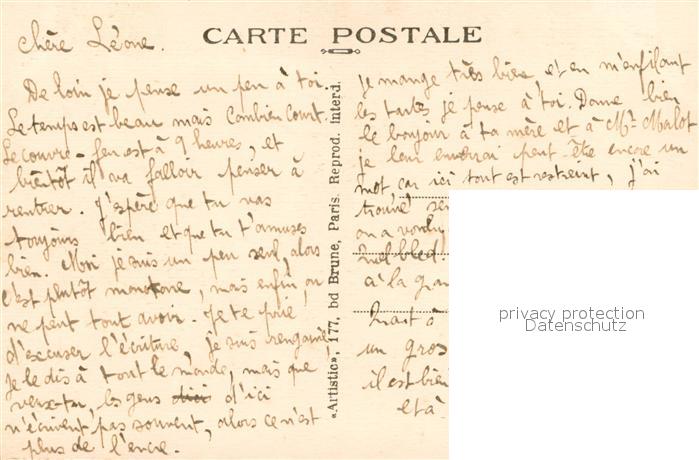 CARTE POSTALE
Chère Léone.
De loin je pense un peu à toi.
Le temps est beau mais combien court.
Le couvre-feu est à 9 heures, et
bientôt il va falloir penser à
rentrer. J'espère que tu vas
toujours bien et que tu t'amuses
bien. Moi je suis un peu seul, alors
c'est plutôt monotone, mais enfin, on
ne peut tout avoir. Je te prie
d'excuser l'écriture, je suis
je le dis à tout le monde, mais que
veux-tu, les gens d'ici
n'écrivent pas souvent, alors ce n'est
plus de l'encre.
«Artistic», 177, bd Brune, Paris. Reprod. interd.
Je mange très bien, et en m'enfilant
les tartes je pense à toi. Donne bien
le bonjour à ta mère et à Mr Malot
je leur enverrai peut-être encore un
mot car ici tout est restreint, j'ai
trouvé
on a voulu
à la
un gros
il est bien
et à
privacy protection
Datenschutz